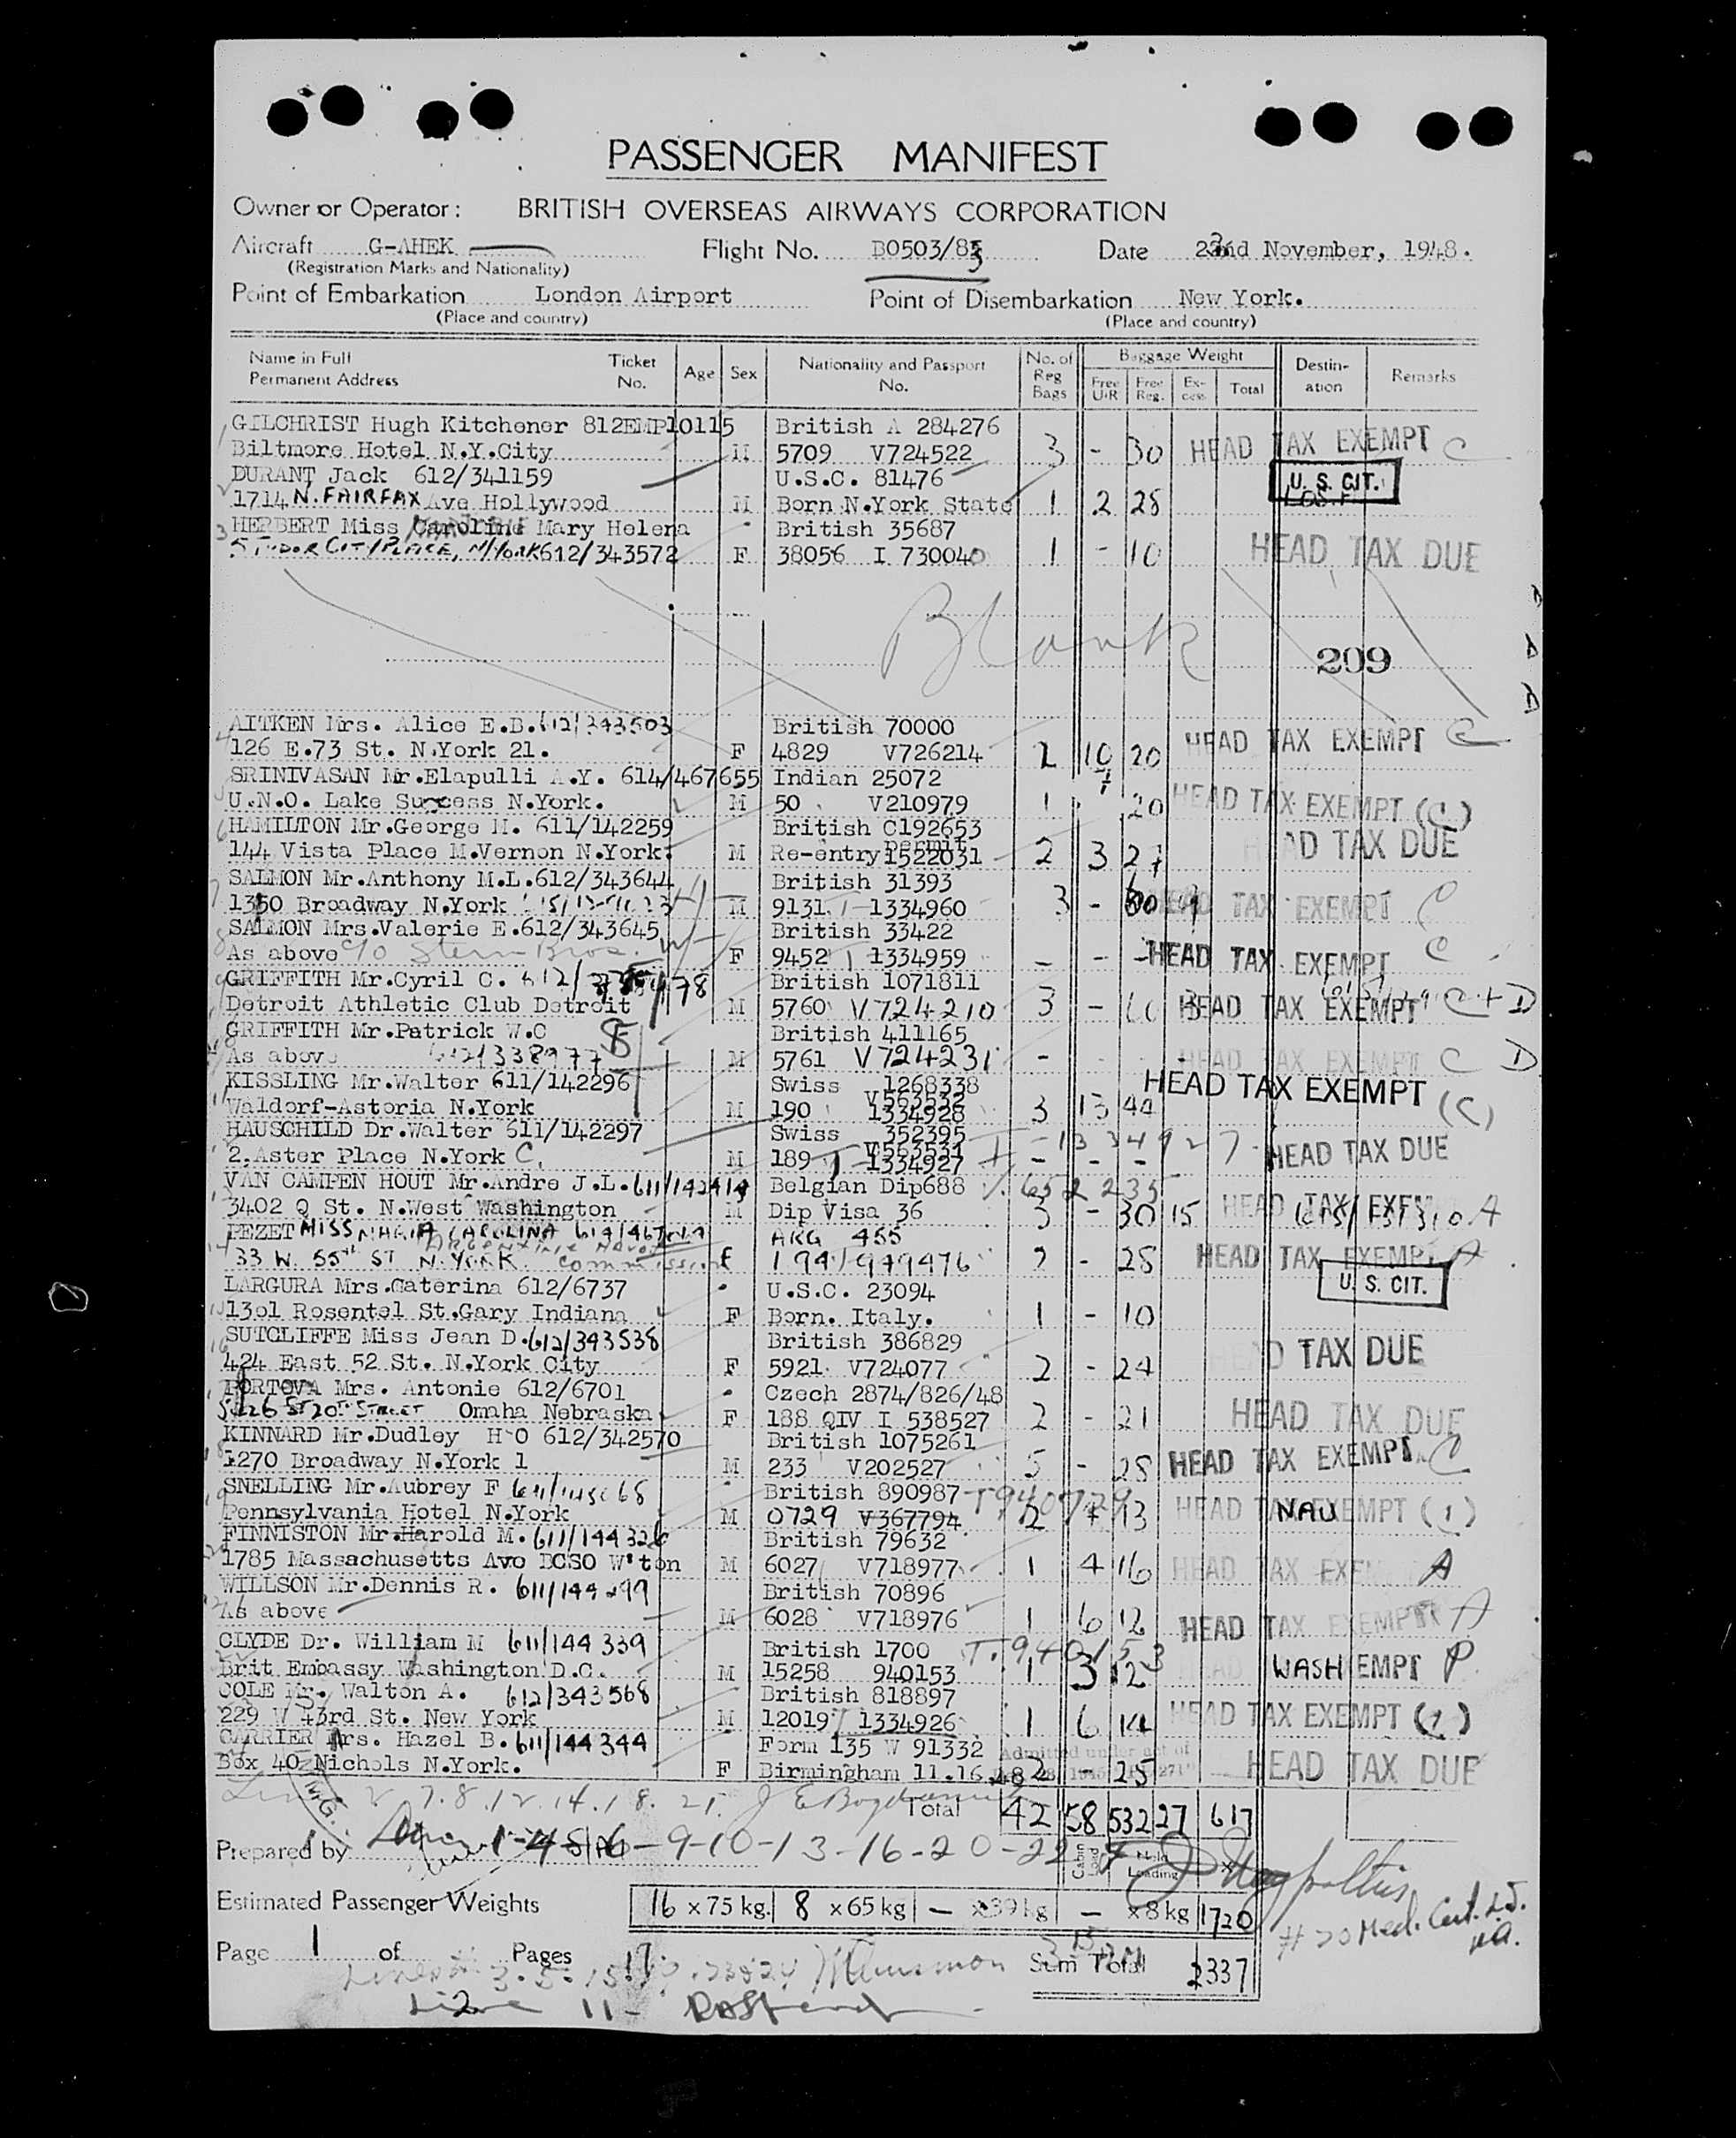 PASSENGER MANIFEST
Owner or Operator: BRITISH OVERSEAS AIRWAYS CORPORATION
Aircraft G-AHEK Flight No. B0503/83 Date 23nd November, 1948.
(Registration Marks and Nationality)
Point of Embarkation London Airport Point of Disembarkation New York.
(Place and country) (Place and country)
Name in Full Permanent Address Ticket No. Age Sex Nationality and Passport No. No. of Reg Bags Baggage Weight Free U/R Free Reg. Excess Total Destination Remarks
GILCHRIST Hugh Kitchener 812EMP10115 British A 284276
Biltmore Hotel N.Y.City M 5709 V724522 3 - 30 HEAD TAX EXEMPT C
DURANT Jack 612/341159 U.S.C. 81476 U. S. CIT.
1714 N. FAIRFAX Ave Hollywood M Born N.York State 1 2 28
HERBERT Miss Caroline Mary Helena British 35687
5 TUDOR CITY PLACE, N/YORK 612/343572 F 38056 I 730040 1 - 10 HEAD TAX DUE
Blank
209
AITKEN Mrs. Alice E.B. 612/343503 British 70000
126 E.73 St. N.York 21. F 4829 V726214 2 10 20 HEAD TAX EXEMPT C
SRINIVASAN Mr.Elapulli A.Y. 614/467655 Indian 25072
U.N.O. Lake Success N.York. M 50 V210979 1 20 HEAD TAX EXEMPT (C)
HAMILTON Mr.George M. 611/142259 British C192653
144 Vista Place M.Vernon N.York. M Re-entry permit 1522031 2 3 27 HEAD TAX DUE
SALMON Mr.Anthony M.L.612/343644 British 31393
1350 Broadway N.York M 9131 1334960 3 - HEAD TAX EXEMPT C
SALMON Mrs.Valerie E.612/343645 British 33422
As above c/o Stern Bros. F 9452 1334959 - - - HEAD TAX EXEMPT C
GRIFFITH Mr.Cyril C. British 1071811
Detroit Athletic Club Detroit M 5760 V724210 3 - HEAD TAX EXEMPT C + D
GRIFFITH Mr.Patrick W.C British 411165
As above 612/338977 M 5761 V724231 - HEAD TAX EXEMPT C D
KISSLING Mr.Walter 611/142296 Swiss 1268338 HEAD TAX EXEMPT
Waldorf-Astoria N.York M 190 V563532 1334928 3 13 44 (C)
HAUSCHILD Dr.Walter 611/142297 Swiss 352395 T-1334927
2.Aster Place N.York C. M 189 V563531 1334927 - - - HEAD TAX DUE
VAN CAMPEN HOUT Mr.Andre J.L. Belgian Dip688 V. 652235
3402 Q St. N.West Washington M Dip Visa 36 3 - 30 15 HEAD TAX EXEM A
PEZET MISS MARIA CAROLINA ARG 455
33 W. 55th ST N. YORK. F 194 979476 2 - 28 HEAD TAX EXEMPT A
LARGURA Mrs.Caterina 612/6737 U.S.C. 23094 U. S. CIT.
1301 Rosentel St.Gary Indiana F Born. Italy. 1 - 10
SUTCLIFFE Miss Jean D.612/343538 British 386829
424 East 52 St. N.York City F 5921 V724077 2 - 24 HEAD TAX DUE
PORTOVA Mrs. Antonie 612/6701 Czech 2874/826/48
Omaha Nebraska F 188 QIV I 538527 2 - 21 HEAD TAX DUE
KINNARD Mr.Dudley H O 612/342570 British 1075261
1270 Broadway N.York 1 M 233 V202527 5 - 28 HEAD TAX EXEMPT C
SNELLING Mr.Aubrey F British 890987 T940729
Pennsylvania Hotel N.York M 0729 V367794 2 7 13 HEAD TAX EXEMPT (1) NAU
FINNISTON Mr.Harold M. 611/144326 British 79632
1785 Massachusetts Ave BCSO W'ton M 6027 V718977 1 4 16 HEAD TAX EXEM A
WILLSON Mr.Dennis R. 611/144299 British 70896
As above M 6028 V718976 1 6 12 HEAD TAX EXEMPT A
CLYDE Dr. William M 611/144339 British 1700 T.940153
Brit Embassy Washington D.C. M 15258 940153 1 3 12 WASH EMPT P
COLE Mr. Walton A. 612/343568 British 818897
229 W 43rd St. New York M 12019 1334926 1 6 14 HEAD TAX EXEMPT (1)
CARRIER Mrs. Hazel B. 611/144344 Form 135 W 91332 Admitted under act of
Box 40 Nichols N.York. F Birmingham 11.16.48 2 - 25 HEAD TAX DUE
2.7.8.12.14.18.21. Total 42 58 532 27 617
Prepared by 9-10-13-16-20-22 Cabin Load Hold Loading
Estimated Passenger Weights 16 x 75 kg. 8 x 65 kg — x 39 kg — x 8 kg 1720
# 20 Med. Cert.
Page 1 of Pages Sum Total 2337
Line 11-